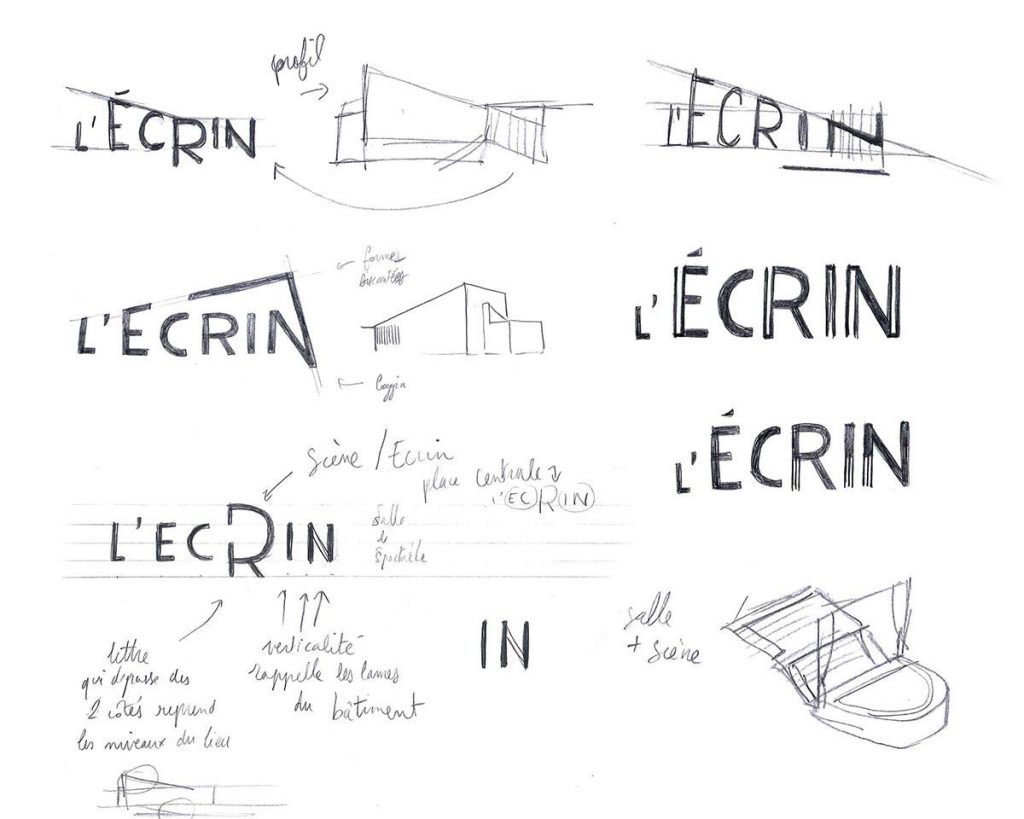 profil
L'ÉCRIN
L'ÉCRIN
formes
L'ECRIN
L'ÉCRIN
L'ÉCRIN
Scène / Ecrin
place centrale
L'ECRIN
L'ECRIN
Salle
de
Spectacle
IN
salle
+ scène
lettre
qui dépasse des
2 côtés reprend
les niveaux du lieu
verticalité
rappelle les lames
du bâtiment